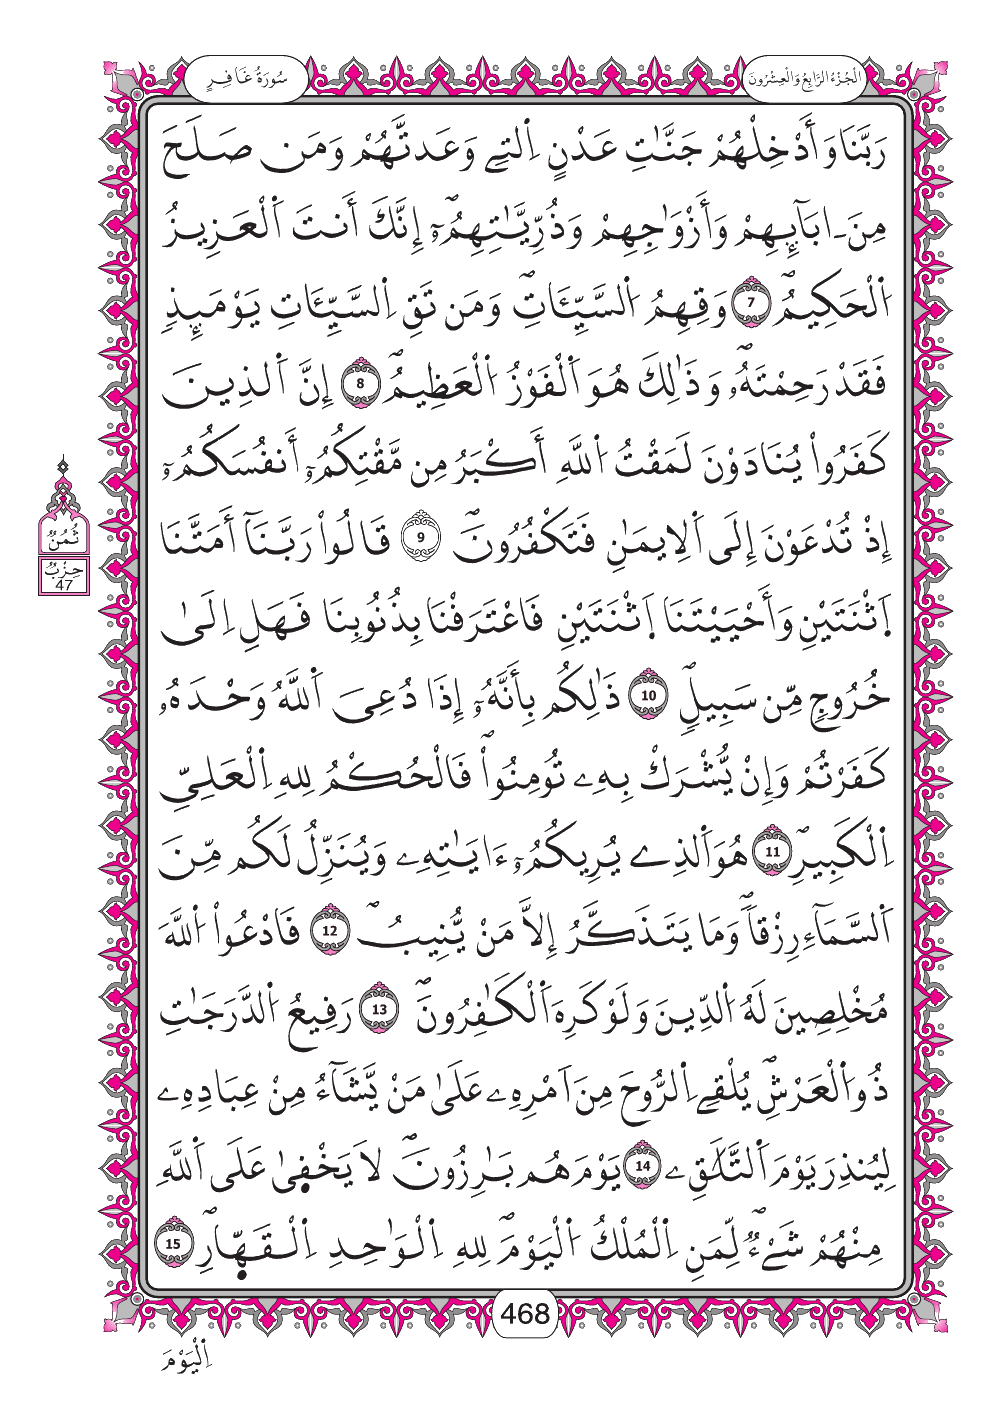 الْجُزْءُ الرَّابِعُ وَالْعِشْرُونَ
سُورَةُ غَافِرٍ
رَبَّنَا وَأَدْخِلْهُمْ جَنَّٰتِ عَدْنٍ اِ۬لتِے وَعَدتَّهُمْ وَمَن صَلَحَ
مِنَ ـ ابَآئِهِمْ وَأَزْوَٰجِهِمْ وَذُرِّيَّٰتِهِمُۥٓۖ إِنَّكَ أَنتَ اَ۬لْعَزِيزُ
اُ۬لْحَكِيمُۖ 7 وَقِهِمُ اُ۬لسَّيِّـَٔاتِۖ وَمَن تَقِ اِ۬لسَّيِّـَٔاتِ يَوْمَئِذٖ
فَقَدْ رَحِمْتَهُۥۖ وَذَٰلِكَ هُوَ اَ۬لْفَوْزُ اُ۬لْعَظِيمُۖ 8 إِنَّ اَ۬لذِينَ
كَفَرُواْ يُنَادَوْنَ لَمَقْتُ اُ۬للَّهِ أَكْبَرُ مِن مَّقْتِكُمُۥٓ أَنفُسَكُمُۥٓ
إِذْ تُدْعَوْنَ إِلَى اَ۬لِايمَٰنِ فَتَكْفُرُونَۖ 9 قَالُواْ رَبَّنَآ أَمَتَّنَا
اَ۪ثْنَتَيْنِ وَأَحْيَيْتَنَا اَ۪ثْنَتَيْنِ فَاعْتَرَفْنَا بِذُنُوبِنَا فَهَلِ اِلَىٰ
خُرُوجٖ مِّن سَبِيلٖۖ 10 ذَٰلِكُم بِأَنَّهُۥٓ إِذَا دُعِيَ اَ۬للَّهُ وَحْدَهُۥ
كَفَرْتُمْ وَإِنْ يُّشْرَكْ بِهِۦ تُومِنُواْۖ فَالْحُكْمُ لِلهِ اِ۬لْعَلِيِّ
اِ۬لْكَبِيرِۖ 11 هُوَ اَ۬لذِے يُرِيكُمُۥٓ ءَايَٰتِهِۦ وَيُنَزِّلُ لَكُم مِّنَ
اَ۬لسَّمَآءِ رِزْقاٗۖ وَمَا يَتَذَكَّرُ إِلَّا مَنْ يُّنِيبُۖ 12 فَادْعُواْ اُ۬للَّهَ
مُخْلِصِينَ لَهُ اُ۬لدِّينَ وَلَوْ كَرِهَ اَ۬لْكَٰفِرُونَۖ 13 رَفِيعُ اُ۬لدَّرَجَٰتِ
ذُو اُ۬لْعَرْشِۖ يُلْقِے اِ۬لرُّوحَ مِنَ اَمْرِهِۦ عَلَىٰ مَنْ يَّشَآءُ مِنْ عِبَادِهِۦ
لِيُنذِرَ يَوْمَ اَ۬لتَّلَٰقِۦ 14 يَوْمَ هُم بَٰرِزُونَۖ لَا يَخْفَىٰ عَلَى اَ۬للَّهِ
مِنْهُمْ شَےْءٞۖ لِّمَنِ اِ۬لْمُلْكُ اُ۬لْيَوْمَۖ لِلهِ اِ۬لْوَٰحِدِ اِ۬لْقَهّ۪ارِۖ 15
ثُمُنُ
حِزْبُ
47
468
اِ۬لْيَوْمَ